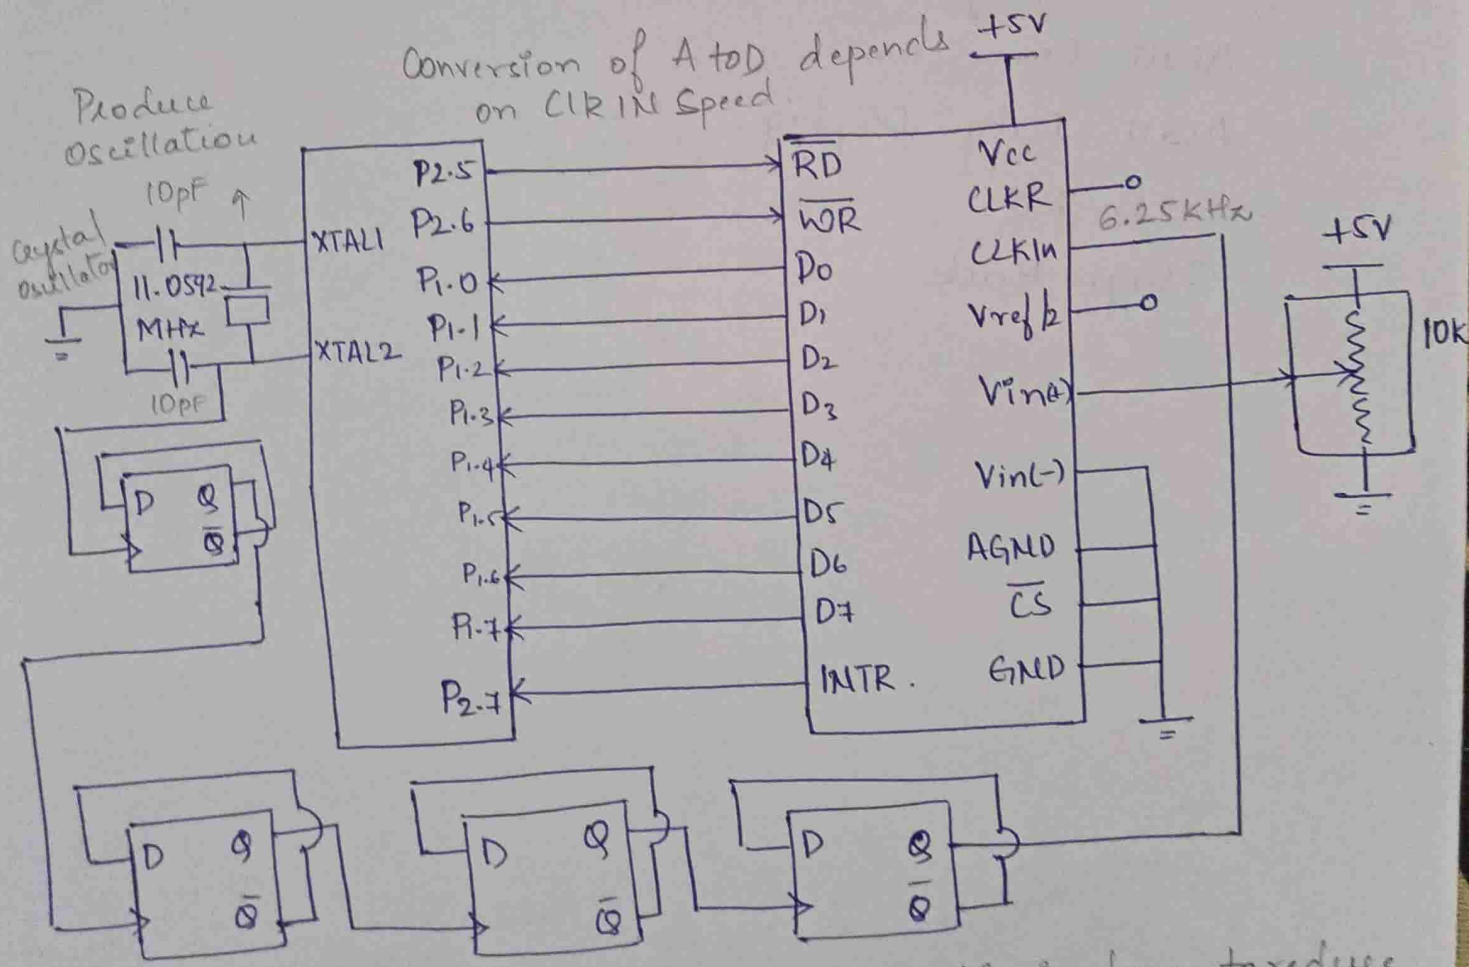 Conversion of A to D depends
on ClK IN Speed.
+5V
Produce
Oscillation
10pF
Crystal
Oscillator
11.0592
MHz
10pF
XTAL1
XTAL2
P2.5
P2.6
P1.0
P1.1
P1.2
P1.3
P1.4
P1.5
P1.6
P1.7
P2.7
RD
WR
D0
D1
D2
D3
D4
D5
D6
D7
INTR.
Vcc
CLKR
6.25KHz
CLKIn
Vref/2
Vin(+)
Vin(-)
AGND
CS
GND
+5V
10K
D Q
Q
D Q
Q
D Q
Q
D Q
Q
to reduce